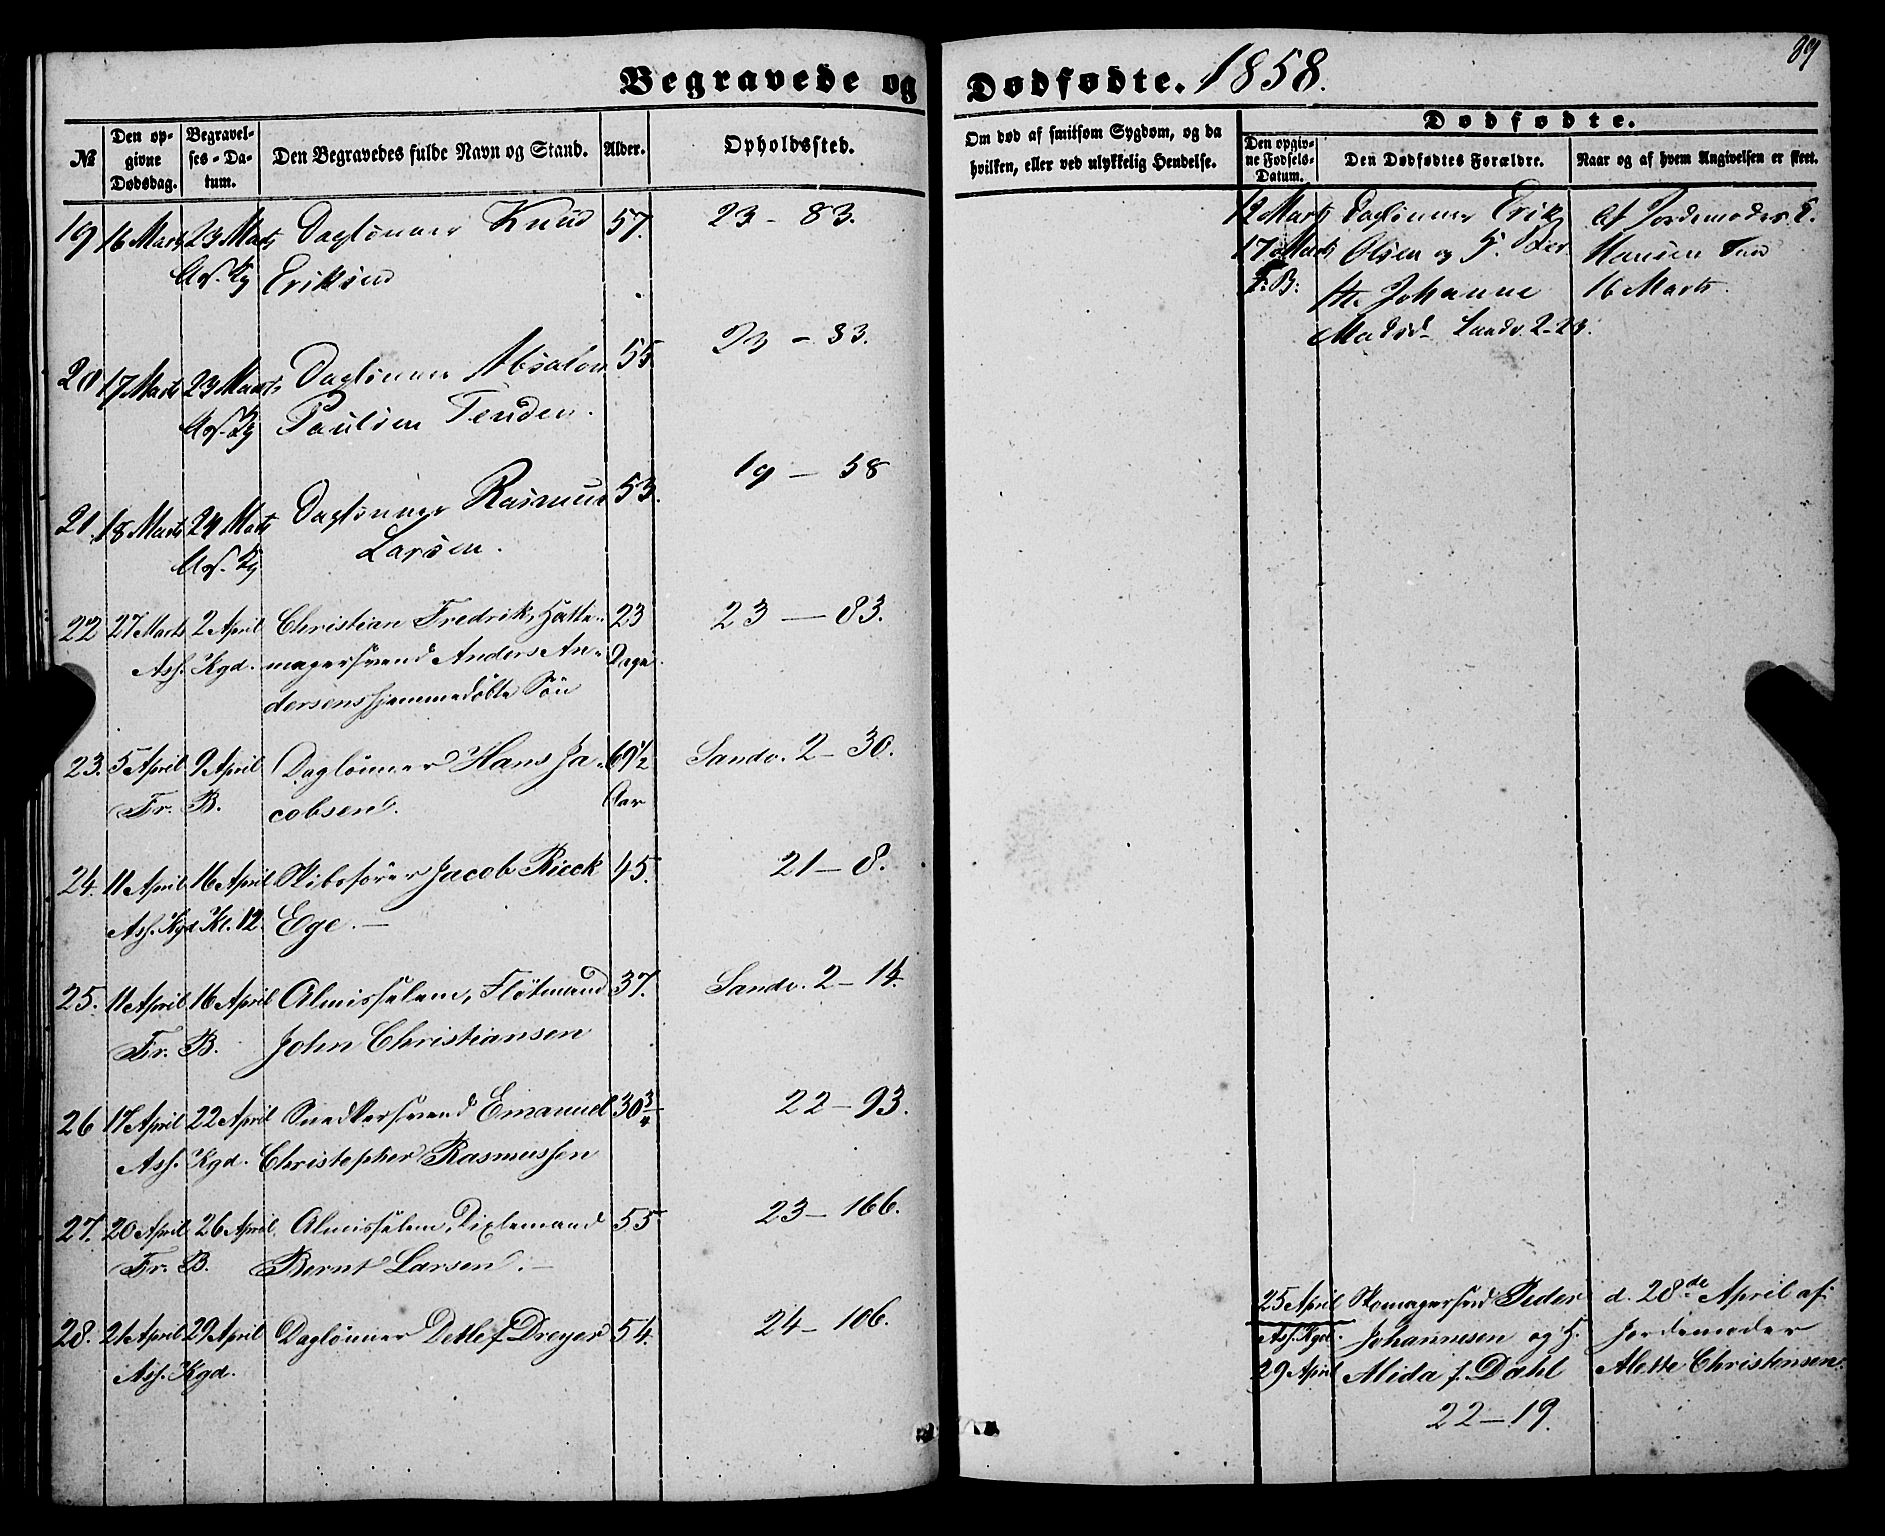 89
Begravede og Dødfødte. 1858.
№
Den opgivne Dødsdag.
Begravelses-Datum.
Den Begravedes fulde Navn og Stand.
Alder.
Opholdssted.
Om død af smitsom Sygdom, og da hvilken, eller ved ulykkelig Hendelse.
Dødfødte.
Den opgivne Fødsels-Datum.
Den Dødfødtes Forældre.
Naar og af hvem Angivelsen er skeet.
19 16 Marts 23 Marts Daglønner Knud 57. 23 - 83.
As. Kg Eriksen
20 17 Marts 23 Marts Daglønner Absalon 55 23 - 83.
As. Kg Paulsen Tenden.
21. 18 Marts 24 Marts Daglønner Rasmus 53. 19 - 58
As. Kg Larsen.
22 27 Marts 2 April Christian Fredrik, Hatte- 23 23 - 83.
Ass. Kgd. magersvend Anders An- Dage.
dersens hjemmedøbte Søn
23. 5 April 9 April Daglønner Hans Ja- 69 1/2 Sandv. 2 - 30.
Fr. B. cobsen. Aar
24. 11 April 16 April Skibsfører Jacob Rieck 45. 21 - 8.
Ass. Kgd Kl. 12. Ege. -
25. 11 April 16 April Almisselem, Fløtmand 37. Sandv. 2 - 14.
Fr. B. John Christiansen
26 17 April 22 April Snedkersvend Emanuel 30 3/4 22 - 93.
Ass. Kgd. Christopher Rasmussen
27. 20 April 26 April. Almisselem, Dixlemand 55 23 - 166.
Fr. B. Bernt Larsen. -
28. 21 April 29 April Daglønner Detlef Dreyer 54. 24 - 106.
Ass. Kgd.
12 Marts Daglønner Erik Af Jordemoder
17 Marts Olsen og H. Hansen
F: B: Johanne 16 Marts.
Madsd. Sandv. 2-23.
25 April Skomagersvd Peder d. 28de April af
Ass. Kgd. Johannesen og H. Jordemoder
29 April Alida f. Dahl Alette Christensen.
22 - 19.